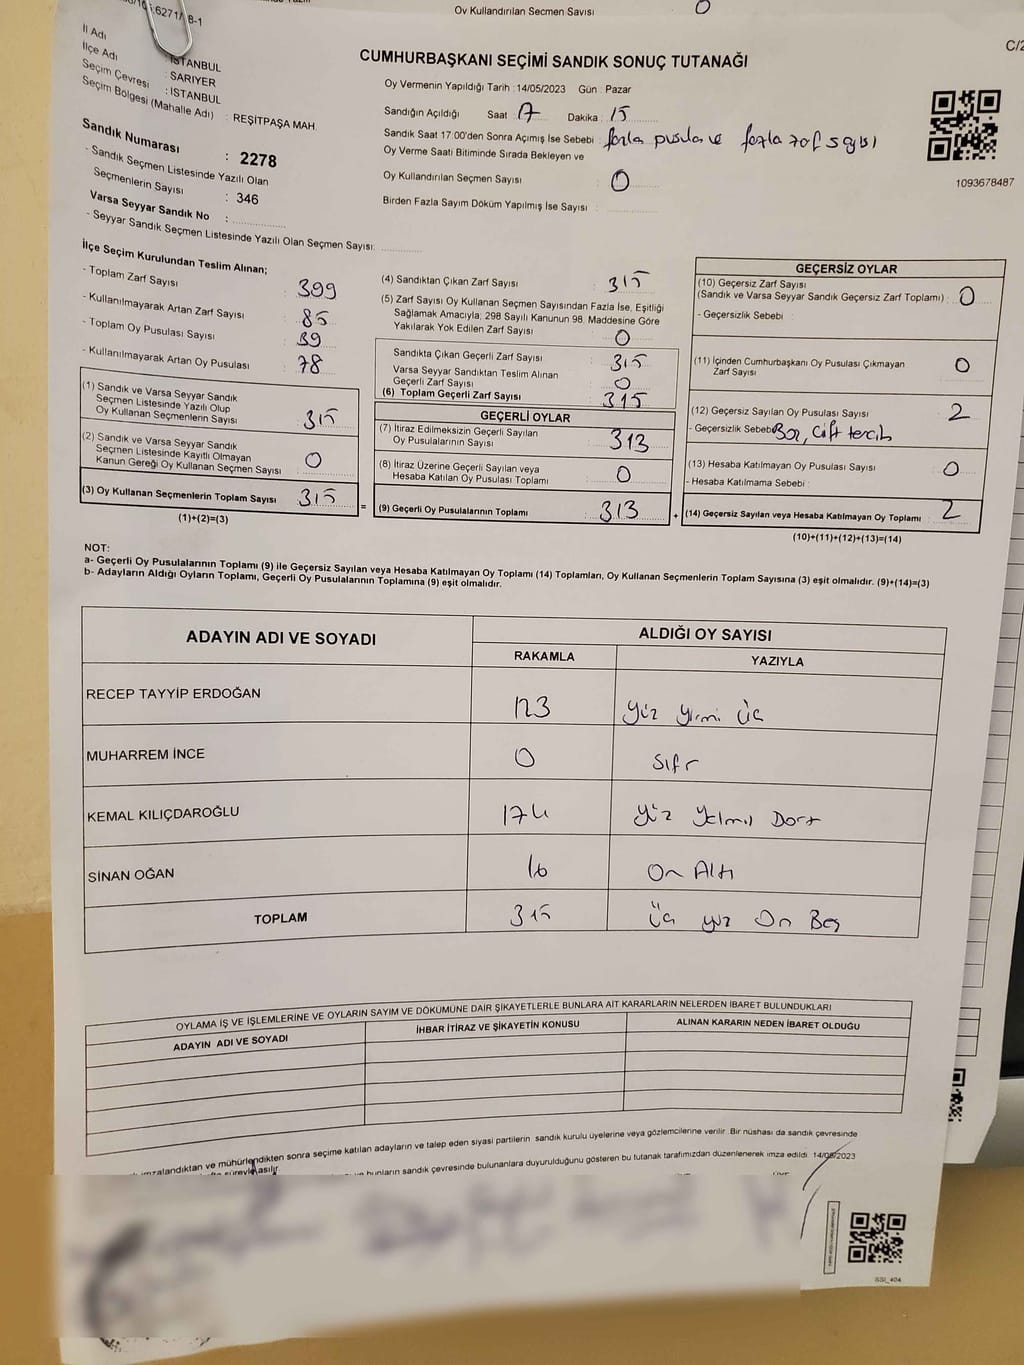 Oy Kullandırılan Secmen Sayısı 0
C/2
İl Adı : İSTANBUL
İlçe Adı : SARIYER
Seçim Çevresi : İSTANBUL
Seçim Bölgesi (Mahalle Adı) : REŞİTPAŞA MAH.
CUMHURBAŞKANI SEÇİMİ SANDIK SONUÇ TUTANAĞI
Oy Vermenin Yapıldığı Tarih : 14/05/2023 Gün : Pazar
Sandığın Açıldığı Saat : 17 Dakika : 15
Sandık Saat 17:00'den Sonra Açımış İse Sebebi : fazla pusula ve fazla zarf sayısı
Oy Verme Saati Bitiminde Sırada Bekleyen ve
Oy Kullandırılan Seçmen Sayısı : 0
Birden Fazla Sayım Döküm Yapılmış İse Sayısı :
1093678487
Sandık Numarası : 2278
- Sandık Seçmen Listesinde Yazılı Olan
Seçmenlerin Sayısı : 346
Varsa Seyyar Sandık No :
- Seyyar Sandık Seçmen Listesinde Yazılı Olan Seçmen Sayısı:
İlçe Seçim Kurulundan Teslim Alınan;
- Toplam Zarf Sayısı : 399
- Kullanılmayarak Artan Zarf Sayısı : 85
- Toplam Oy Pusulası Sayısı : 39
- Kullanılmayarak Artan Oy Pusulası : 78
(1) Sandık ve Varsa Seyyar Sandık
Seçmen Listesinde Yazılı Olup
Oy Kullanan Seçmenlerin Sayısı : 315
(2) Sandık ve Varsa Seyyar Sandık
Seçmen Listesinde Kayıtlı Olmayan
Kanun Gereği Oy Kullanan Seçmen Sayısı : 0
(3) Oy Kullanan Seçmenlerin Toplam Sayısı : 315
(1)+(2)=(3)
(4) Sandıktan Çıkan Zarf Sayısı : 315
(5) Zarf Sayısı Oy Kullanan Seçmen Sayısından Fazla İse, Eşitliği
Sağlamak Amacıyla; 298 Sayılı Kanunun 98. Maddesine Göre
Yakılarak Yok Edilen Zarf Sayısı : 0
Sandıkta Çıkan Geçerli Zarf Sayısı : 315
Varsa Seyyar Sandıktan Teslim Alınan
Geçerli Zarf Sayısı : 0
(6) Toplam Geçerli Zarf Sayısı : 315
GEÇERLİ OYLAR
(7) İtiraz Edilmeksizin Geçerli Sayılan
Oy Pusulalarının Sayısı : 313
(8) İtiraz Üzerine Geçerli Sayılan veya
Hesaba Katılan Oy Pusulası Toplamı : 0
(9) Geçerli Oy Pusulalarının Toplamı : 313
GEÇERSİZ OYLAR
(10) Geçersiz Zarf Sayısı
(Sandık ve Varsa Seyyar Sandık Geçersiz Zarf Toplamı) : 0
- Geçersizlik Sebebi :
(11) İçinden Cumhurbaşkanı Oy Pusulası Çıkmayan
Zarf Sayısı : 0
(12) Geçersiz Sayılan Oy Pusulası Sayısı : 2
- Geçersizlik Sebebi Boş, Çift tercih
(13) Hesaba Katılmayan Oy Pusulası Sayısı : 0
- Hesaba Katılmama Sebebi :
(14) Geçersiz Sayılan veya Hesaba Katılmayan Oy Toplamı : 2
(10)+(11)+(12)+(13)=(14)
NOT:
a- Geçerli Oy Pusulalarının Toplamı (9) ile Geçersiz Sayılan veya Hesaba Katılmayan Oy Toplamı (14) Toplamları, Oy Kullanan Seçmenlerin Toplam Sayısına (3) eşit olmalıdır. (9)+(14)=(3)
b- Adayların Aldığı Oyların Toplamı, Geçerli Oy Pusulalarının Toplamına (9) eşit olmalıdır.
ADAYIN ADI VE SOYADI ALDIĞI OY SAYISI
RAKAMLA YAZIYLA
RECEP TAYYİP ERDOĞAN 123 Yüz yirmi üç
MUHARREM İNCE 0 Sıfır
KEMAL KILIÇDAROĞLU 174 Yüz Yetmiş Dört
SİNAN OĞAN 16 On Altı
TOPLAM 315 Üç yüz On Beş
OYLAMA İŞ VE İŞLEMLERİNE VE OYLARIN SAYIM VE DÖKÜMÜNE DAİR ŞİKAYETLERLE BUNLARA AİT KARARLARIN NELERDEN İBARET BULUNDUKLARI
ADAYIN ADI VE SOYADI İHBAR İTİRAZ VE ŞİKAYETİN KONUSU ALINAN KARARIN NEDEN İBARET OLDUĞU
imzalandıktan ve mühürlendikten sonra seçime katılan adayların ve talep eden siyasi partilerin sandık kurulu üyelerine veya gözlemcilerine verilir. Bir nüshası da sandık çevresinde
bunların sandık çevresinde bulunanlara duyurulduğunu gösteren bu tutanak tarafımızdan düzenlenerek imza edildi. 14/05/2023